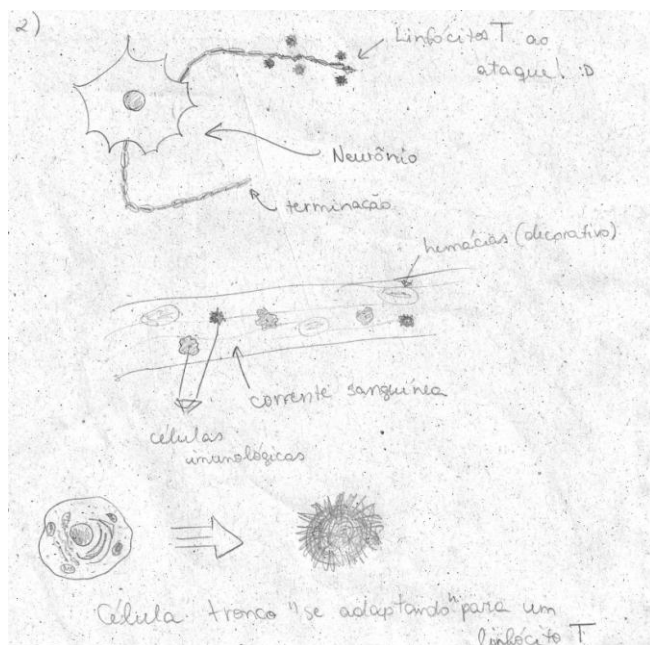 2)
Linfócitos T ao
ataque! :D
Neurônio
terminação
hemácias (decorativo)
corrente sanguínea
células
imunológicas
Célula tronco "se adaptando" para um
linfócito T